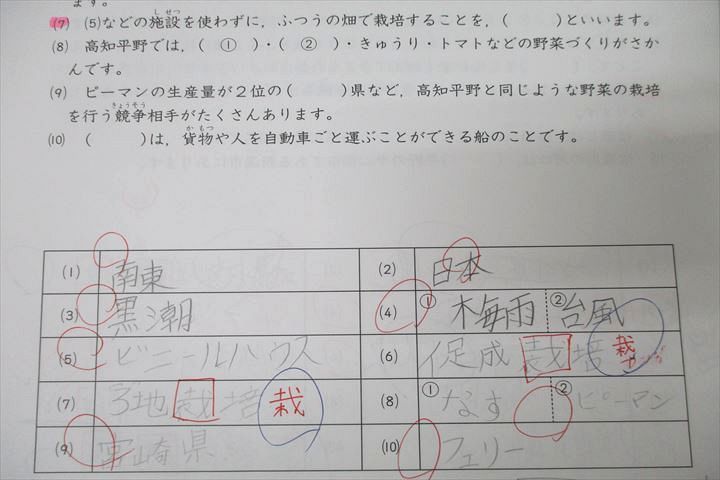 ます。
(7) (5)などの施設を使わずに，ふつうの畑で栽培することを，(　　　)といいます。
(8) 高知平野では，( ① )・( ② )・きゅうり・トマトなどの野菜づくりがさか
んです。
(9) ピーマンの生産量が2位の(　　　)県など，高知平野と同じような野菜の栽培
を行う競争相手がたくさんあります。
(10) (　　　)は，貨物や人を自動車ごと運ぶことができる船のことです。
(1) 南東 (2) 日本
(3) 黒潮 (4) ① 梅雨 ② 台風
(5) ビニールハウス (6) 促成栽培 栽
(7) 地栽培 栽 (8) ① なす ② ピーマン
(9) 宮崎県 (10) フェリー